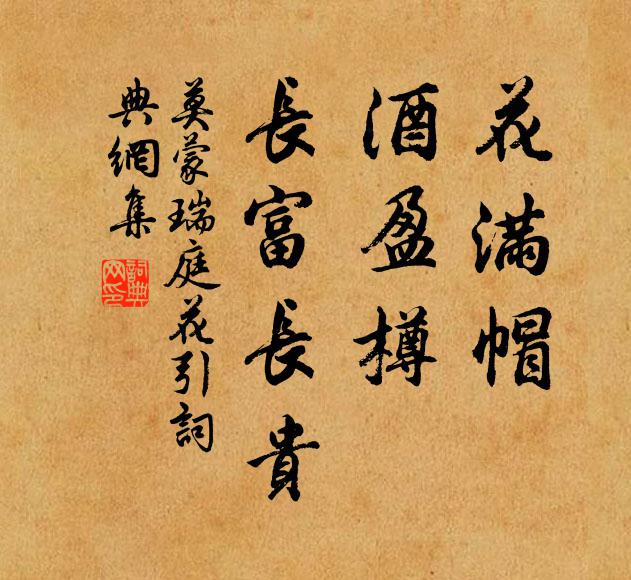 花滿帽
酒盈樽
長富長貴
莫蒙瑞庭花引詞
典網集
詞典网印